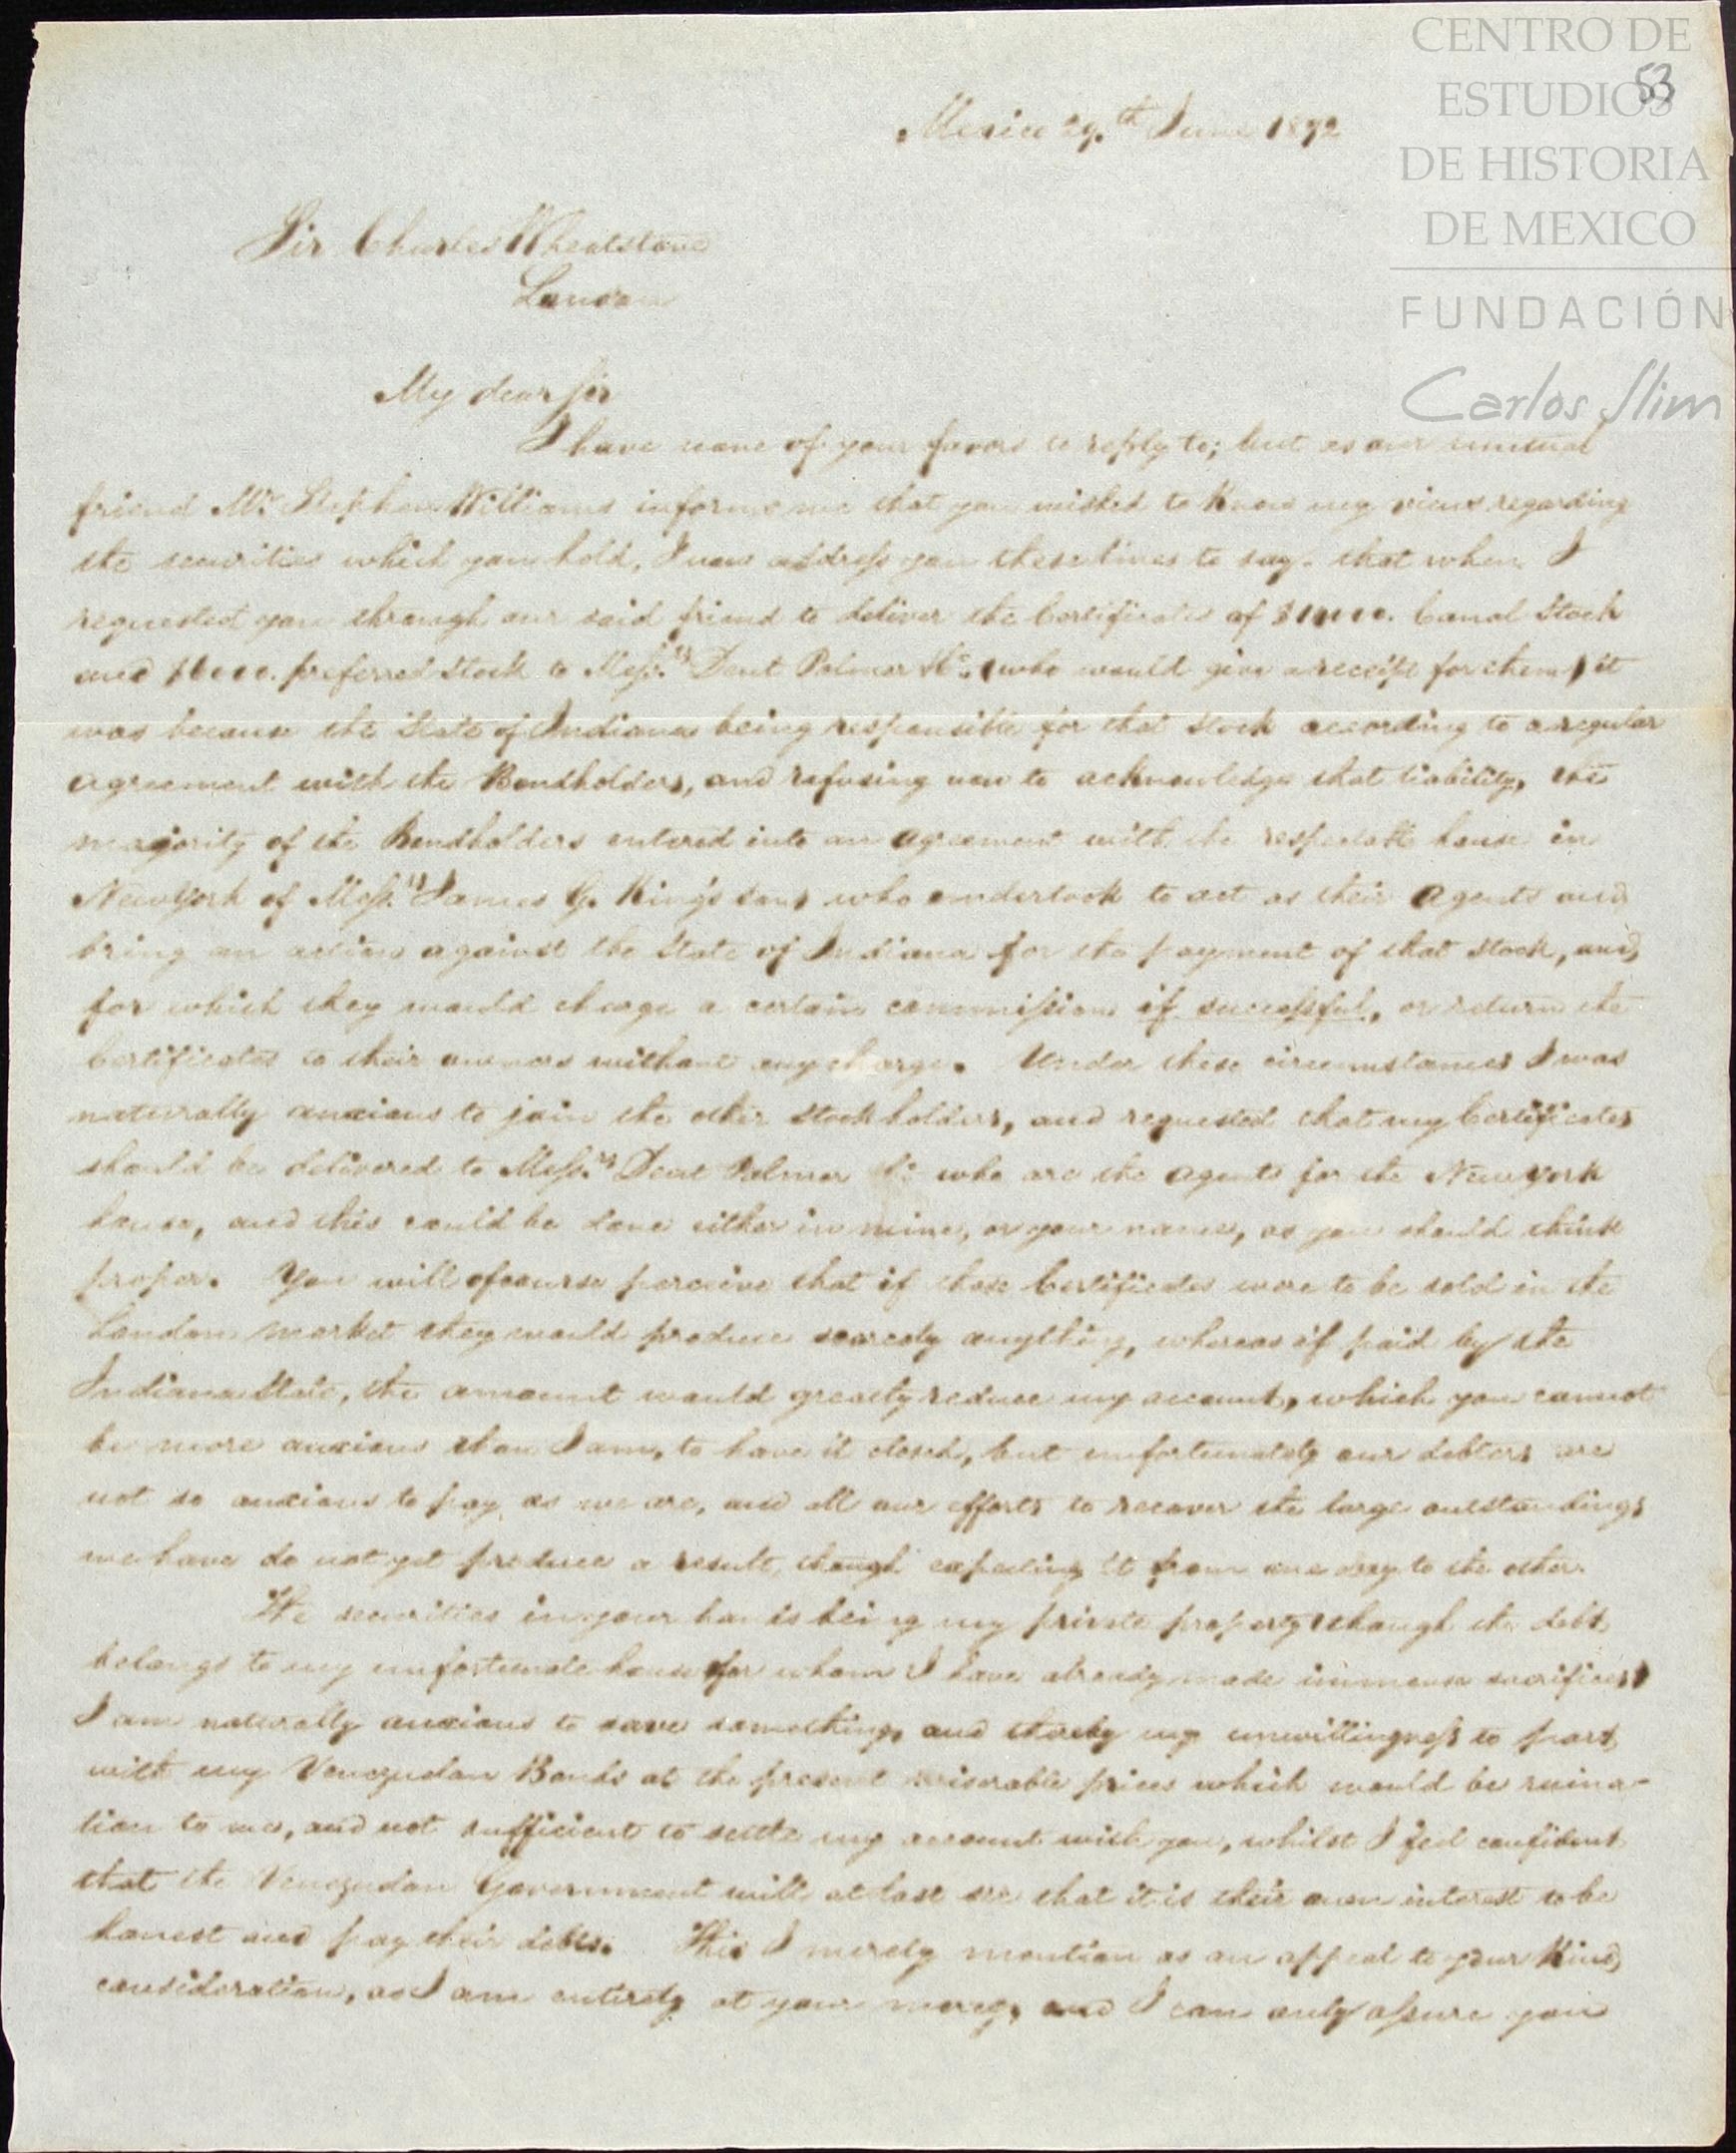 CENTRO DE
ESTUDIOS
DE HISTORIA
DE MEXICO
FUNDACIÓN
Carlos Slim
53
Mexico 29.th June 1872
Sir Charles Wheatstone
London
My dear Sir
I have none of your favors to reply to; but as our mutual
friend Mr. Stephen Williams informs me that you wished to know my views regarding
the securities which you hold, I now address you these lines to say that when I
requested you through our said friend to deliver the Certificates of Canal Stock
and preferred Stock to Messrs. Dent Palmer &c. (who would give a receipt for them) it
was because the State of Indiana being responsible for that Stock according to a regular
agreement with the Bondholders, and refusing now to acknowledge that liability, the
majority of the Bondholders entered into an agreement with the respectable house in
New York of Messrs. James G. King's Sons who undertook to act as their Agents and
bring an action against the State of Indiana for the payment of that Stock, and
for which they would charge a certain commission if successful, or return the
Certificates to their owners without any charge. Under these circumstances I was
naturally anxious to join the other Stockholders, and requested that my Certificates
should be delivered to Messrs. Dent Palmer &c. who are the Agents for the New York
house, and this could be done either in mine, or your name, as you should think
proper. You will of course perceive that if those Certificates were to be sold in the
London market they would produce scarcely anything, whereas if paid by the
Indiana State, the amount would greatly reduce my account, which you cannot
be more anxious than I am, to have it closed, but unfortunately our debtors are
not so anxious to pay as we are, and all our efforts to recover the large outstandings
we have do not yet produce a result, though expecting it from one day to the other.
The securities in your hands being my private property (though the debt
belongs to my unfortunate house for whom I have already made immense sacrifices)
I am naturally anxious to save something, and thereby my unwillingness to part
with my Venezuelan Bonds at the present miserable prices which would be ruina-
tion to me, and not sufficient to settle my account with you, whilst I feel confident
that the Venezuelan Government will at last see that it is their own interest to be
honest and pay their debts. This I merely mention as an appeal to your kind
consideration, as I am entirely at your mercy, and I can only assure you